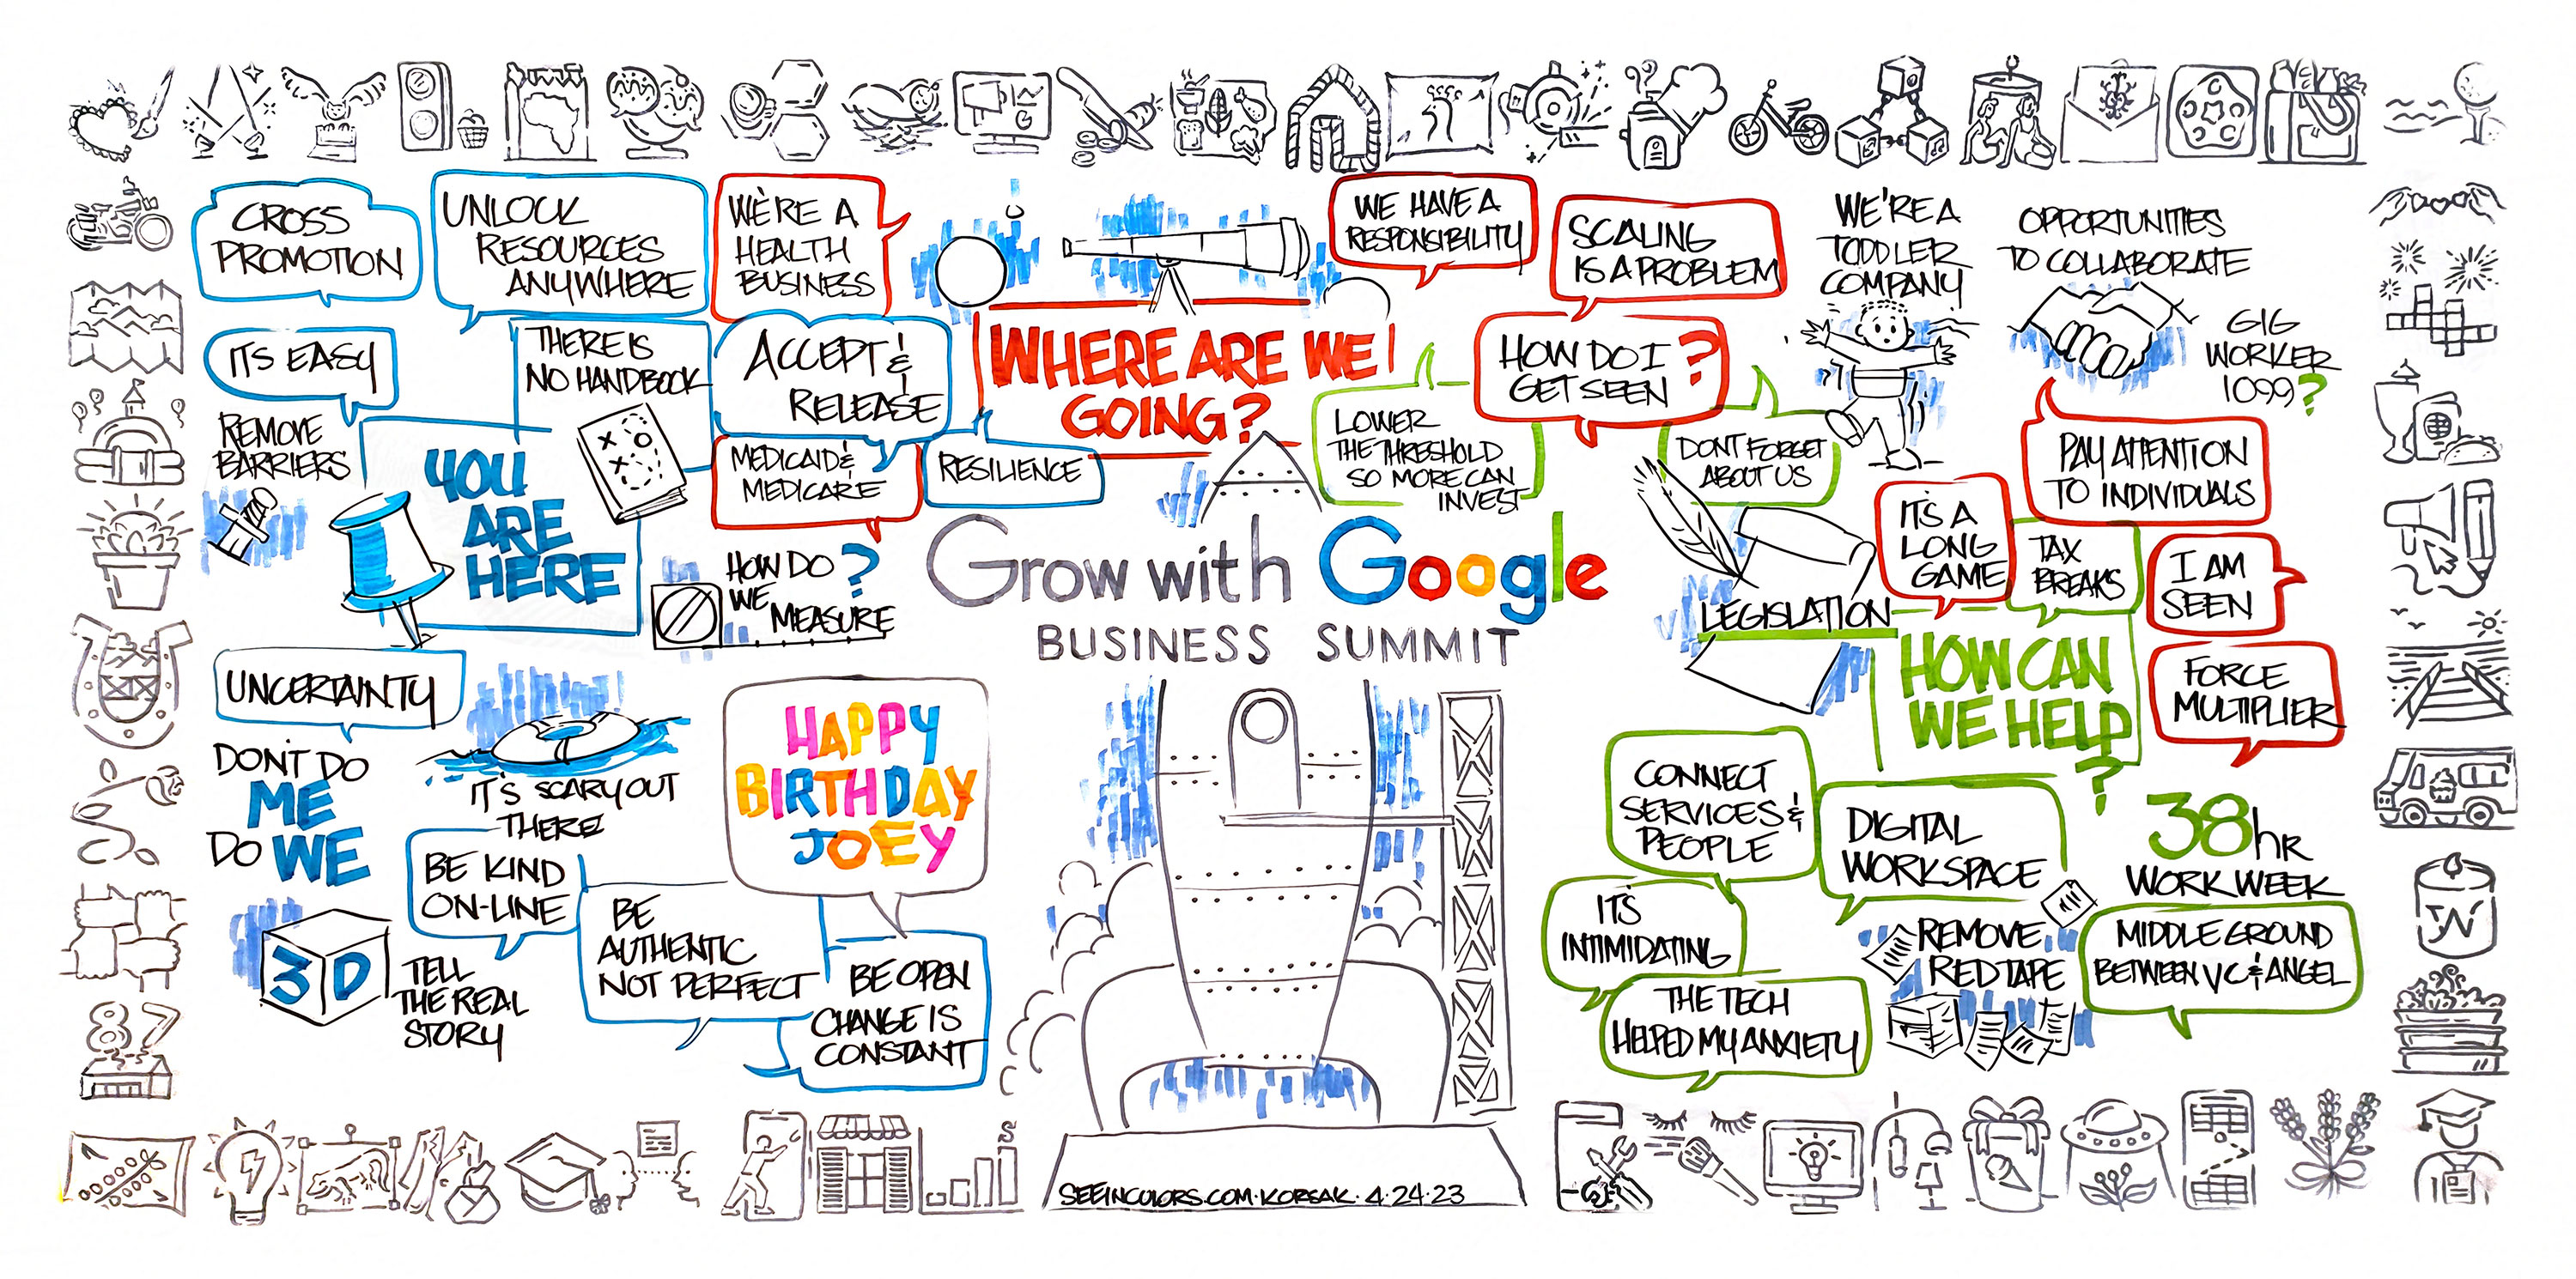 CROSS
PROMOTION
UNLOCK
RESOURCES
ANYWHERE
WE'RE A
HEALTH
BUSINESS
IT'S EASY
THERE IS
NO HANDBOOK
ACCEPT &
RELEASE
REMOVE
BARRIERS
YOU
ARE
HERE
MEDICAID &
MEDICARE
RESILIENCE
HOW DO
WE
MEASURE
?
UNCERTAINTY
DON'T DO
ME
DO WE
IT'S SCARY OUT
THERE
BE KIND
ON-LINE
3D
TELL
THE REAL
STORY
BE
AUTHENTIC
NOT PERFECT
HAPPY
BIRTHDAY
JOEY
BE OPEN
CHANGE IS
CONSTANT
WHERE ARE WE
GOING?
Grow with Google
BUSINESS SUMMIT
WE HAVE A
RESPONSIBILITY
SCALING
IS A PROBLEM
HOW DO I
GET SEEN
?
LOWER
THE THRESHOLD
SO MORE CAN
INVEST
DONT FORGET
ABOUT US
WE'RE A
TODDLER
COMPANY
OPPORTUNITIES
TO COLLABORATE
GIG
WORKER
1099?
PAY ATTENTION
TO INDIVIDUALS
IT'S A
LONG
GAME
TAX
BREAKS
I AM
SEEN
LEGISLATION
HOW CAN
WE HELP
?
FORCE
MULTIPLIER
CONNECT
SERVICES &
PEOPLE
DIGITAL
WORKSPACE
38hr
WORK WEEK
IT'S
INTIMIDATING
REMOVE
RED TAPE
MIDDLE GROUND
BETWEEN VC & ANGEL
THE TECH
HELPED MY ANXIETY
87
$
SEEINCOLORS.COM·KORSAK·4·24·23